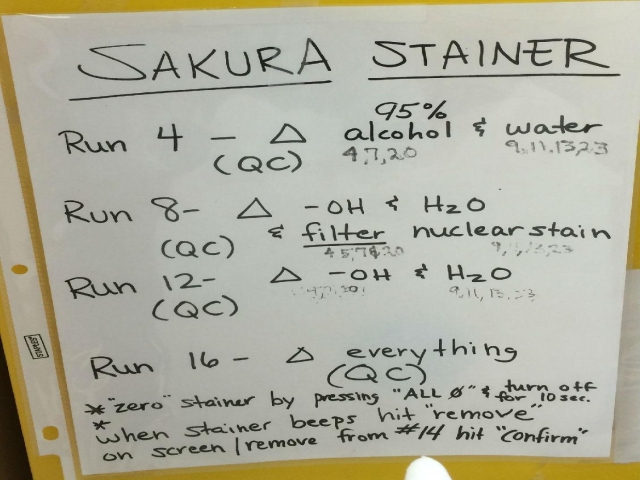 SAKURA STAINER
95%
Run 4 - △ alcohol & water
(QC) 4,7,20 9,11,13,23
Run 8- △ -OH & H2O
(QC) & filter nuclear stain
Run 12- △ -OH & H2O
(QC) 9,11,13,23
Run 16 - △ everything
(QC)
* "zero" stainer by pressing "ALL Ø" & turn off for 10 sec.
* when stainer beeps hit "remove"
on screen/remove from #14 hit "confirm"